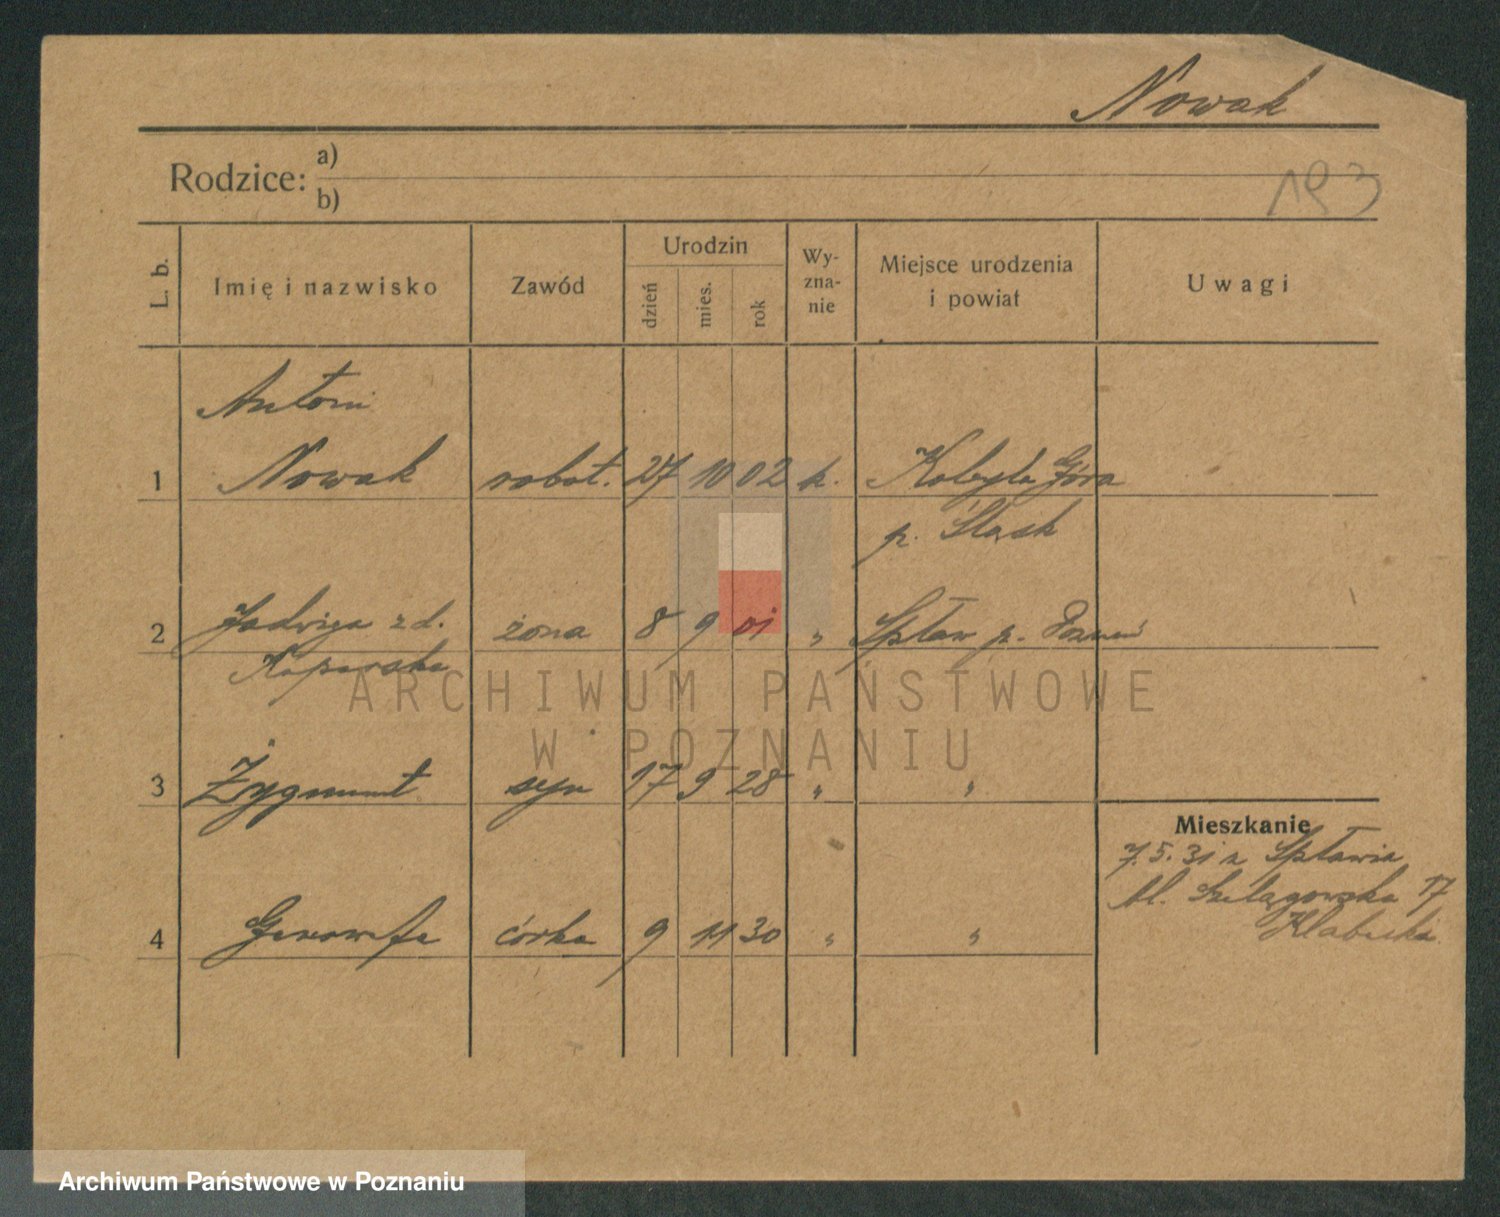 Nowak
Rodzice: a)
b)
193
L. b. Imię i nazwisko Zawód Urodzin dzień mies. rok Wy-zna-nie Miejsce urodzenia i powiat Uwagi
Antoni
1 Nowak robot. 27 10 02 k. Kobyla Góra
p. Śląsk
2 Jadwiga z d. żona 8 9 01 " Spław p. Poznań
3 Zygmunt syn 17 9 28 " "
Mieszkanie
7.5.31 z Spławia
4 Genowefa córka 9 11 30 " "
Szelągowska 17
ARCHIWUM PAŃSTWOWE
W POZNANIU
Archiwum Państwowe w Poznaniu